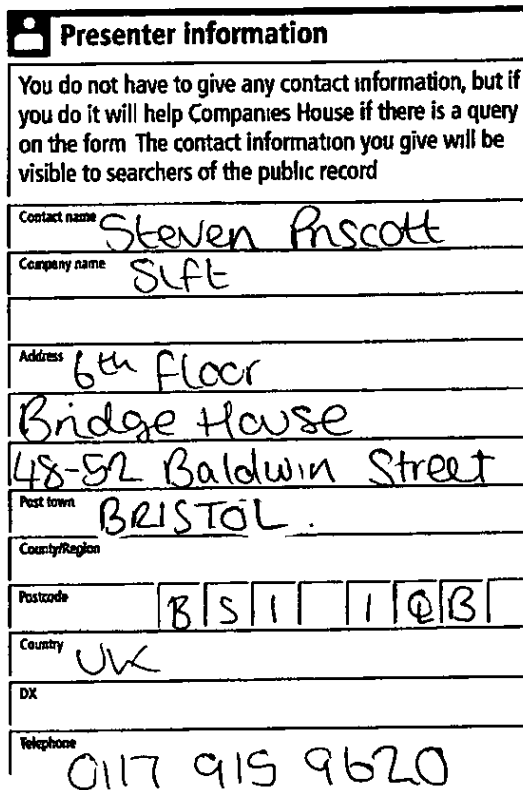 Presenter information
You do not have to give any contact information, but if
you do it will help Companies House if there is a query
on the form The contact information you give will be
visible to searchers of the public record
Contact name Steven Priscott
Company name Sift
Address 6th Floor
Bridge House
48-52 Baldwin Street
Post town BRISTOL.
County/Region
Postcode BS1 1QB
Country UK
DX
Telephone 0117 915 9620